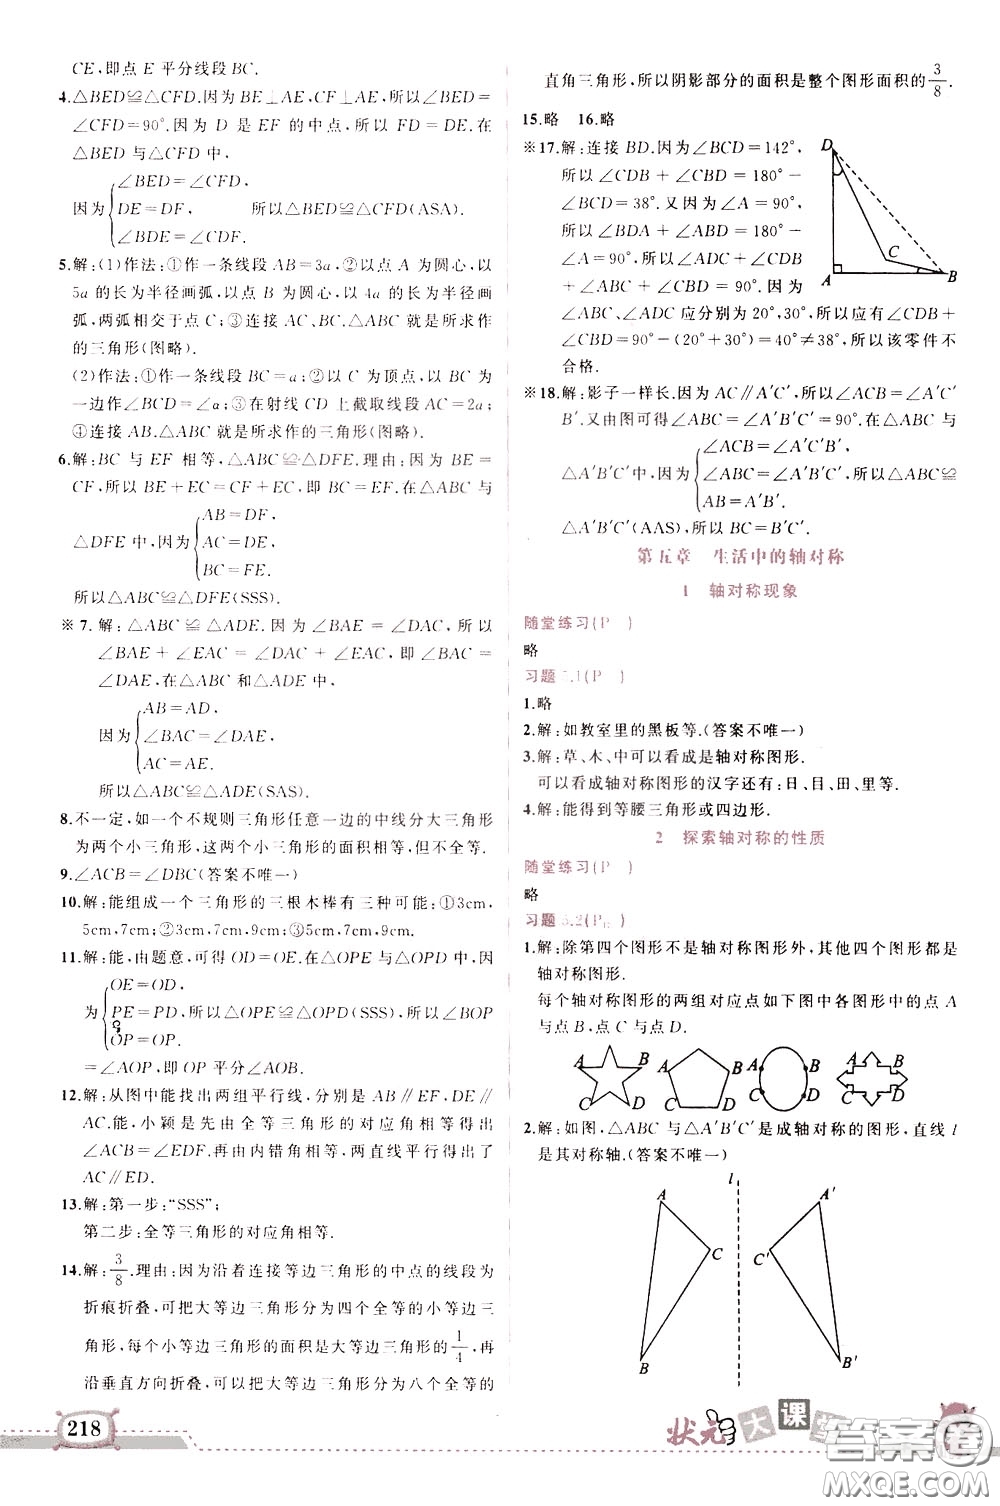 CE,即点 E 平分线段 BC.
4.△BED≌△CFD.因为 BE⊥AE,CF⊥AE,所以∠BED=
∠CFD=90°.因为 D 是 EF 的中点,所以 FD=DE.在
△BED 与△CFD 中,
∠BED=∠CFD,
因为 DE=DF, 所以△BED≌△CFD(ASA).
∠BDE=∠CDF.
5.解:(1)作法:①作一条线段 AB=3a,②以点 A 为圆心,以
5a 的长为半径画弧,以点 B 为圆心,以 4a 的长为半径画
弧,两弧相交于点 C;③连接 AC、BC.△ABC 就是所求作
的三角形(图略).
(2)作法:①作一条线段 BC=a;②以 C 为顶点,以 BC 为
一边作∠BCD=∠α;③在射线 CD 上截取线段 AC=2a;
④连接 AB.△ABC 就是所求作的三角形(图略).
6.解:BC 与 EF 相等,△ABC≌△DFE.理由:因为 BE=
CF,所以 BE+EC=CF+EC,即 BC=EF.在△ABC 与
AB=DF,
△DFE 中,因为 AC=DE,
BC=FE.
所以△ABC≌△DFE(SSS).
※7.解:△ABC≌△ADE.因为∠BAE=∠DAC,所以
∠BAE+∠EAC=∠DAC+∠EAC,即∠BAC=
∠DAE,在△ABC 和△ADE 中,
AB=AD,
因为 ∠BAC=∠DAE,
AC=AE.
所以△ABC≌△ADE(SAS).
8.不一定,如一个不规则三角形任意一边的中线分大三角形
为两个小三角形,这两个小三角形的面积相等,但不全等.
9.∠ACB=∠DBC(答案不唯一)
10.解:能组成一个三角形的三根木棒有三种可能:①3cm,
5cm,7cm;②3cm,7cm,9cm;③5cm,7cm,9cm.
11.解:能,由题意,可得 OD=OE.在△OPE 与△OPD 中,因
OE=OD,
为 PE=PD,所以△OPE≌△OPD(SSS),所以∠BOP
OP=OP.
=∠AOP,即 OP 平分∠AOB.
12.解:从图中能找出两组平行线,分别是 AB∥EF,DE∥
AC.能,小颖是先由全等三角形的对应角相等得出
∠ACB=∠EBD.再由内错角相等,两直线平行得出了
AC∥ED.
13.解:第一步:“SSS”;
第二步:全等三角形的对应角相等.
14.解:3/8.理由:因为沿着连接等边三角形的中点的线段为
折痕折叠,可把大等边三角形分为四个全等的小等边三
角形,每个小等边三角形的面积是大等边三角形的1/4,再
沿垂直方向折叠,可以把大等边三角形分为八个全等的
218
直角三角形,所以阴影部分的面积是整个图形面积的3/8.
15.略 16.略
※17.解:连接 BD.因为∠BCD=142°,
所以∠CDB+∠CBD=180°-
∠BCD=38°.又因为∠A=90°,
所以∠BDA+∠ABD=180°-
∠A=90°,所以∠ADC+∠ABC+
∠CDB+∠CBD=90°.因为
∠ABC、∠ADC 应分别为 20°,30°,所以应有∠CDB+
∠CBD=90°-(20°+30°)=40°≠38°,所以该零件不
合格.
D
C
A
B
※18.解:影子一样长.因为 AC∥A′C′,所以∠ACB=∠A′C′
B′.又由图可得∠ABC=∠A′B′C′=90°.在△ABC 与
∠ACB=∠A′C′B′,
△A′B′C′中,因为 ∠ABC=∠A′B′C′,所以△ABC≌
AB=A′B′.
△A′B′C′(AAS),所以 BC=B′C′.
第五章 生活中的轴对称
1 轴对称现象
随堂练习(P )
略
习题5.1(P )
1.略
2.解:如教室里的黑板等.(答案不唯一)
3.解:草、木、中可以看成是轴对称图形.
可以看成轴对称图形的汉字还有:日、目、田、里等.
4.解:能得到等腰三角形或四边形.
2 探索轴对称的性质
随堂练习(P )
略
习题5.2(P )
1.解:除第四个图形不是轴对称图形外,其他四个图形都是
轴对称图形.
每个轴对称图形的两组对应点如下图中各图形中的点 A
与点 B,点 C 与点 D.
A B A B A B A B
C D C D C D C D
2.解:如图,△ABC 与△A′B′C′是成轴对称的图形,直线 l
是其对称轴.(答案不唯一)
l
A A′
C C′
B B′
状元大课堂
答案圈
MXQE.COM